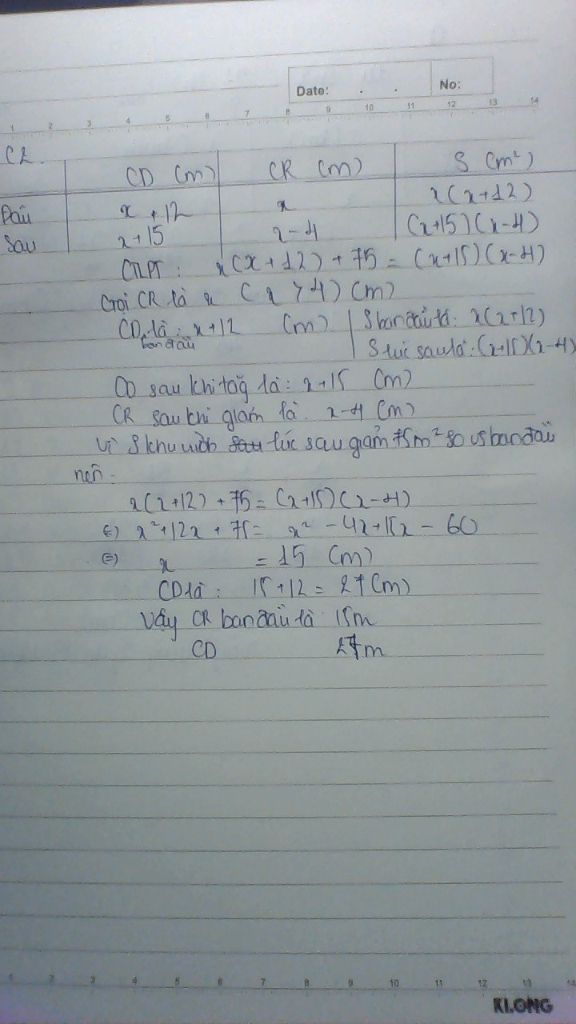 Date: . . No:
1 2 3 4 5 6 7 8 9 10 11 12 13 14
C2.
CD (m) CR (m) S (m²)
Đầu x + 12 x x(x+12)
Sau x+15 x-4 (x+15)(x-4)
CTLPT: x(x+12) + 75 = (x+15)(x-4)
Gọi CR là x (x > 4) (m)
CD là: x+12 (m) S ban đầu là: x(x+12)
ban đầu
S lúc sau là: (x+15)(x-4)
CD sau khi tăg là: x+15 (m)
CR sau khi giảm là x-4 (m)
Vì S khu vườn sau lúc sau giảm 75m² so vs ban đầu
nên:
x(x+12) + 75 = (x+15)(x-4)
(=) x²+12x + 75 = x² - 4x+15x - 60
(=) x = 15 (m)
CD là: 15+12 = 27 (m)
Vậy CR ban đầu là 15m
CD 27m
1 2 3 4 5 6 7 8 9 10 11 12 13 14
KLONG